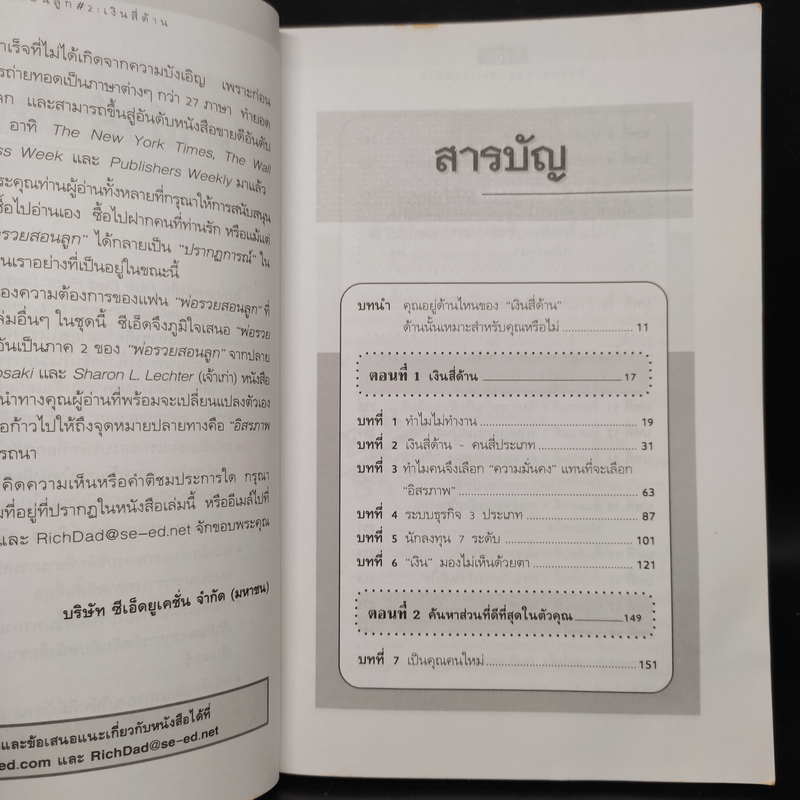 นลูก#2:เงินสี่ด้าน
าเร็จที่ไม่ได้เกิดจากความบังเอิญ เพราะก่อน
รถ่ายทอดเป็นภาษาต่างๆ กว่า 27 ภาษา ทำยอด
ลก และสามารถขึ้นสู่อันดับหนังสือขายดีอันดับ
อาทิ The New York Times, The Wall
ss Week และ Publishers Weekly มาแล้ว
ระคุณท่านผู้อ่านทั้งหลายที่กรุณาให้การสนับสนุน
ซื้อไปอ่านเอง ซื้อไปฝากคนที่ท่านรัก หรือแม้แต่
อรวยสอนลูก" ได้กลายเป็น "ปรากฏการณ์" ใน
นเราอย่างที่เป็นอยู่ในขณะนี้
องความต้องการของแฟน "พ่อรวยสอนลูก" ที่
ล่มอื่นๆ ในชุดนี้ ซีเอ็ดจึงภูมิใจเสนอ "พ่อรวย
อันเป็นภาค 2 ของ "พ่อรวยสอนลูก" จากปลาย
osaki และ Sharon L. Lechter (เจ้าเก่า) หนังสือ
นำทางคุณผู้อ่านที่พร้อมจะเปลี่ยนแปลงตัวเอง
อก้าวไปให้ถึงจุดหมายปลายทางคือ "อิสรภาพ
รถนา
คิดความเห็นหรือคำติชมประการใด กรุณา
มที่อยู่ที่ปรากฏในหนังสือเล่มนี้ หรืออีเมล์ไปที่
และ RichDad@se-ed.net จักขอบพระคุณ
บริษัท ซีเอ็ดยูเคชั่น จำกัด (มหาชน)
และข้อเสนอแนะเกี่ยวกับหนังสือได้ที่
ed.com และ RichDad@se-ed.net
สารบัญ
บทนำ คุณอยู่ด้านไหนของ "เงินสี่ด้าน"
ด้านนั้นเหมาะสำหรับคุณหรือไม่ 11
ตอนที่ 1 เงินสี่ด้าน 17
บทที่ 1 ทำไมไม่ทำงาน 19
บทที่ 2 เงินสี่ด้าน - คนสี่ประเภท 31
บทที่ 3 ทำไมคนจึงเลือก "ความมั่นคง" แทนที่จะเลือก
"อิสรภาพ" 63
บทที่ 4 ระบบธุรกิจ 3 ประเภท 87
บทที่ 5 นักลงทุน 7 ระดับ 101
บทที่ 6 "เงิน" มองไม่เห็นด้วยตา 121
ตอนที่ 2 ค้นหาส่วนที่ดีที่สุดในตัวคุณ 149
บทที่ 7 เป็นคุณคนใหม่ 151